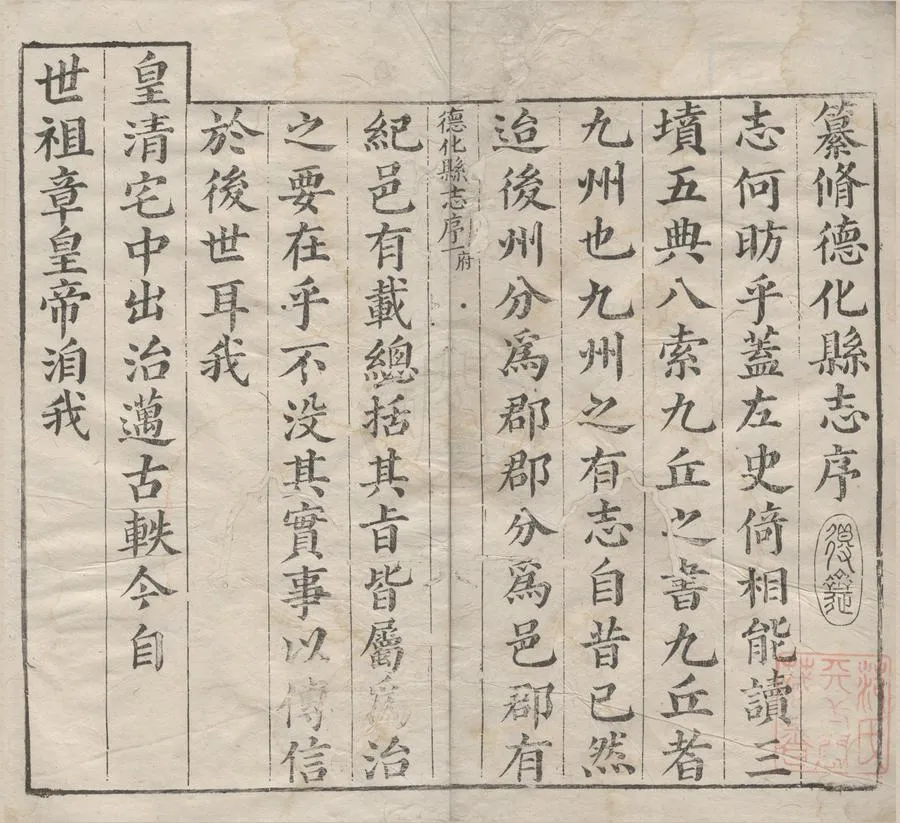 纂脩德化縣志序
志何昉乎葢左史倚相能讀三
墳五典八索九丘之書九丘者
九州也九州之有志自昔已然
迨後州分爲郡郡分爲邑郡有
德化縣志序 府
紀邑有載總括其旨皆屬爲治
之要在乎不没其實事以傳信
於後世耳我
皇清宅中出治邁古軼今自
世祖章皇帝洎我